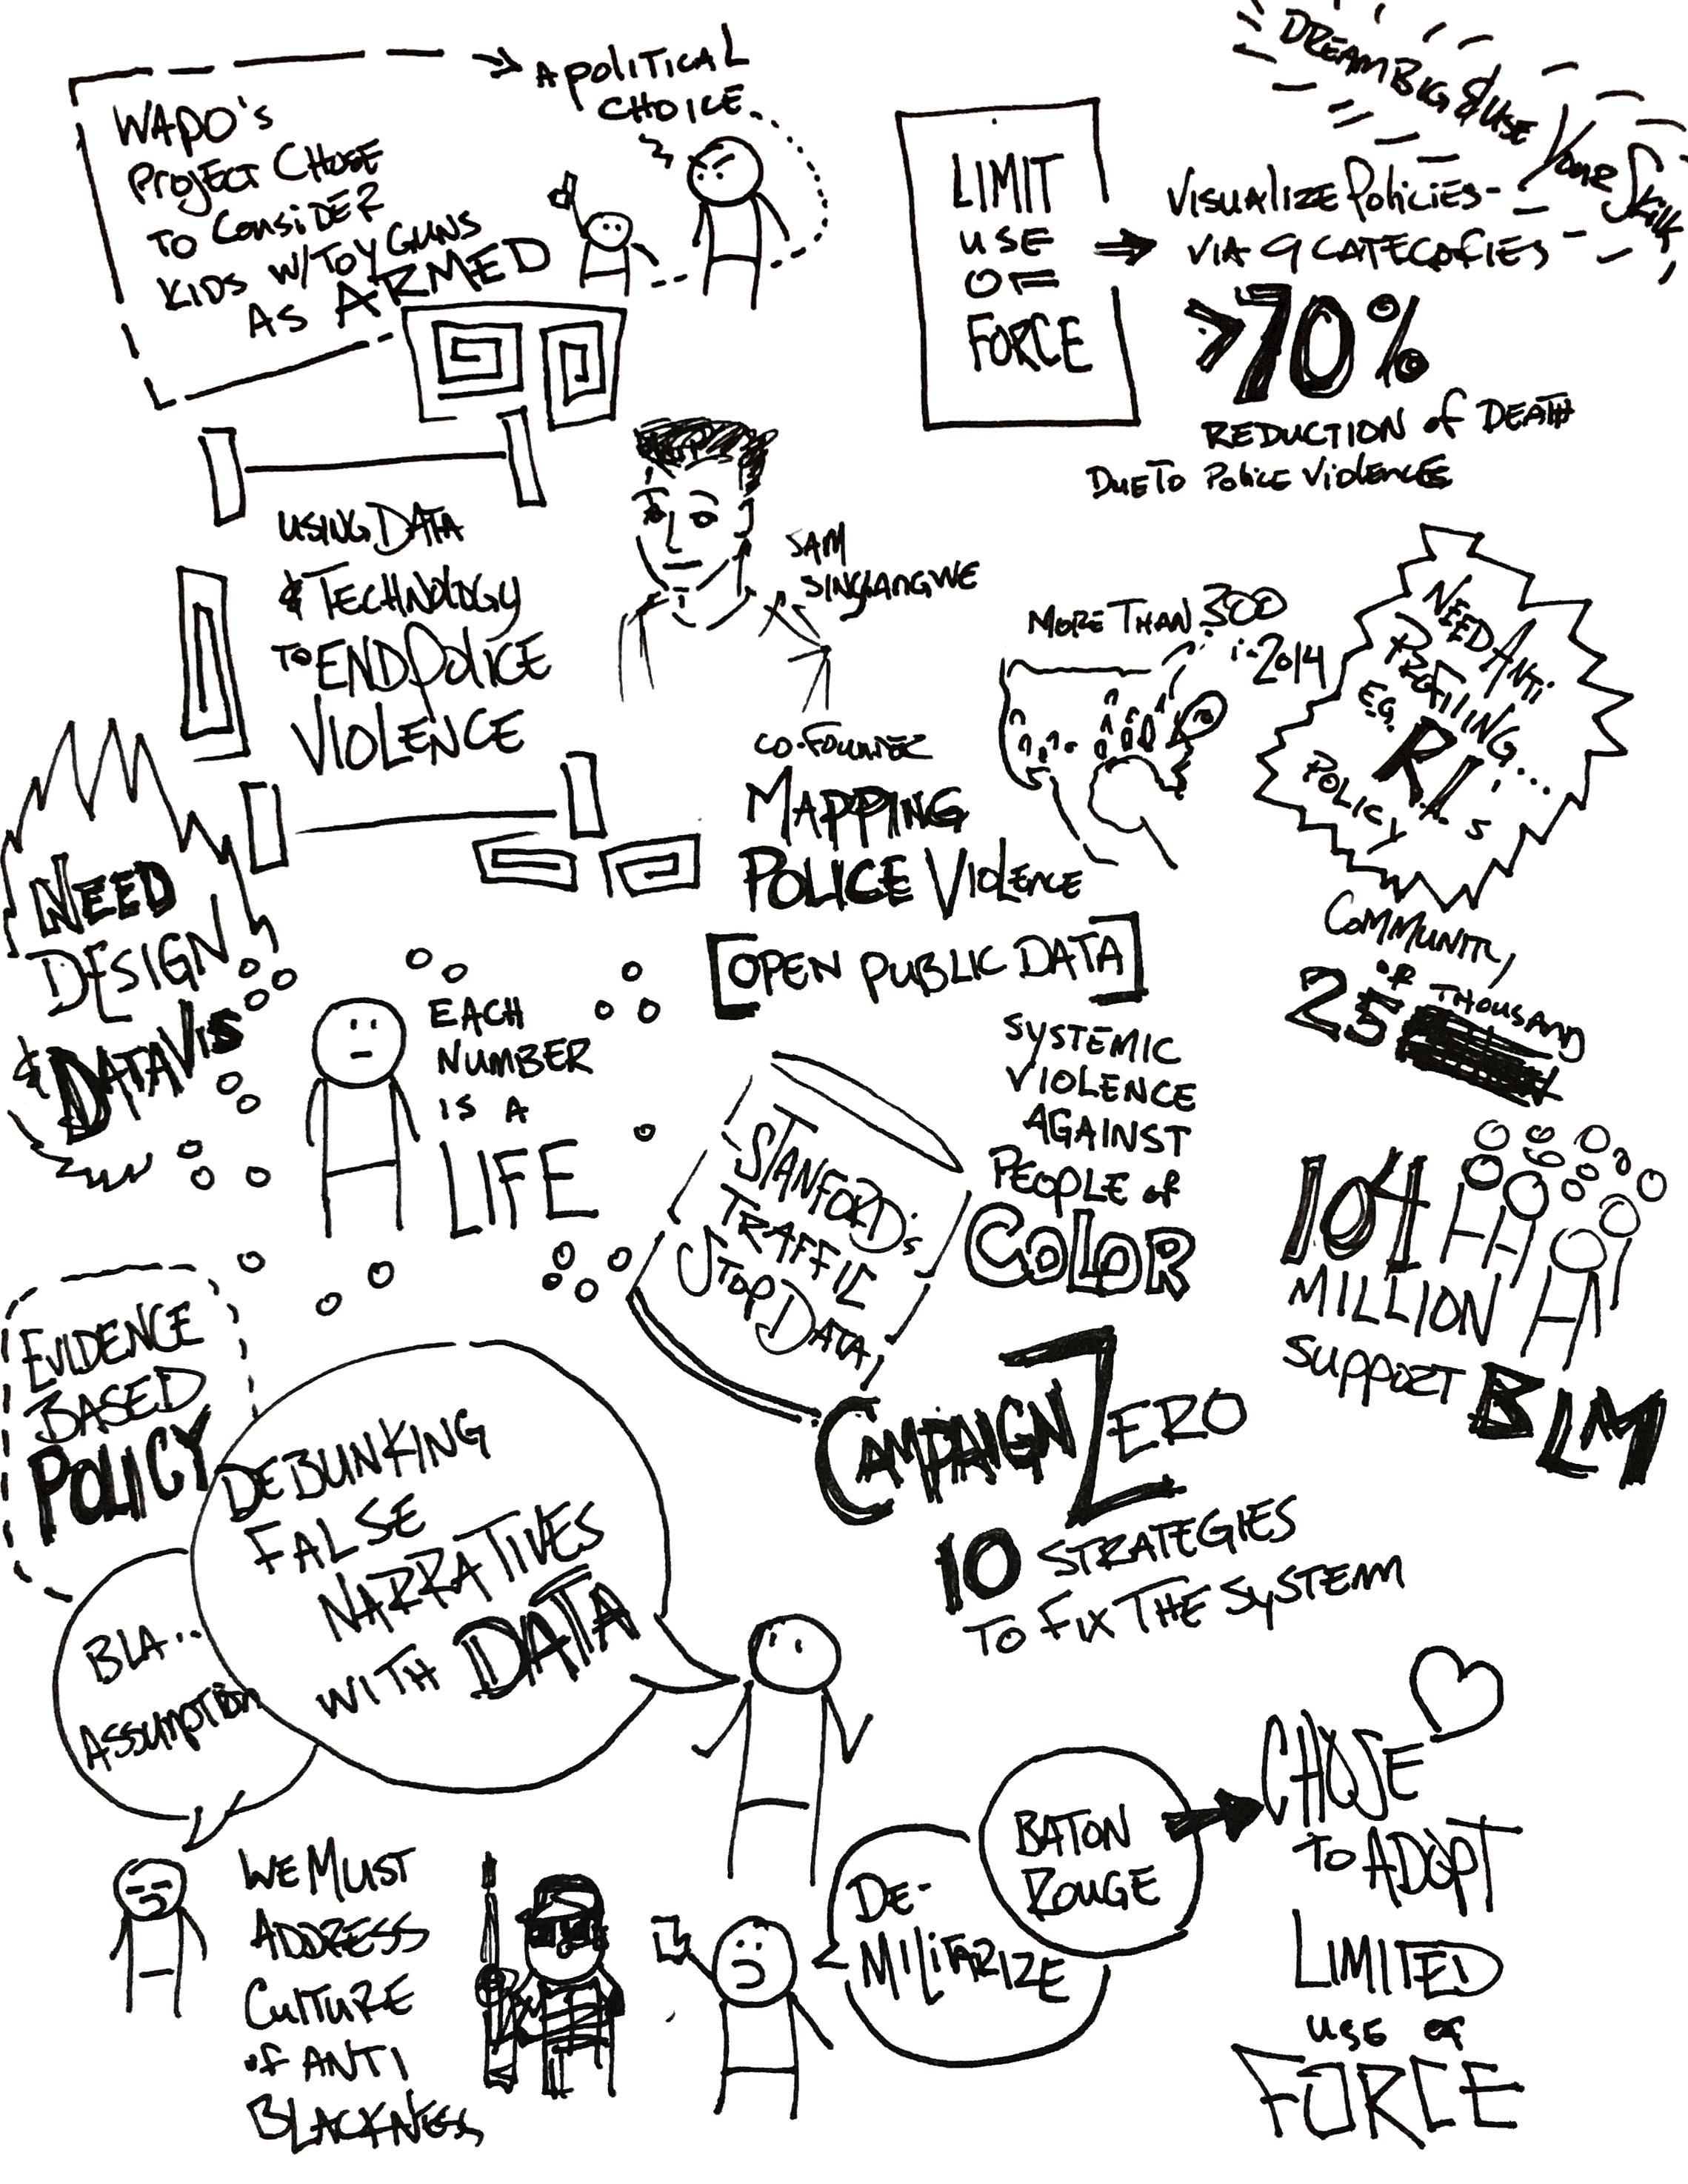 A POLITICAL
CHOICE...
WAPO'S
PROJECT CHOSE
TO CONSIDER
KIDS W/TOY GUNS
AS ARMED
DREAM BIG & USE YOUR SKILLS
LIMIT
USE
OF
FORCE
VISUALIZE POLICIES-
VIA 9 CATEGORIES
>70%
REDUCTION of DEATH
DUE TO POLICE VIOLENCES
USING DATA
& TECHNOLOGY
TO END POLICE
VIOLENCE
SAM
SINYANGWE
CO-FOUNDER
MAPPING
POLICE VIOLENCE
[OPEN PUBLIC DATA]
MORE THAN 300
in 2014
NEED ANTI-
PROFILING...
EG.
RI's
POLICY
NEED
DESIGN
& DATAVIS
EACH
NUMBER
IS A
LIFE
COMMUNITY
of
25 THOUSAND
SYSTEMIC
VIOLENCE
AGAINST
PEOPLE of
COLOR
STANFORD's
TRAFFIC
STOP DATA!
104
MILLION
SUPPORT BLM
EVIDENCE
BASED
POLICY
CAMPAIGN ZERO
10 STRATEGIES
TO FIX THE SYSTEM
DEBUNKING
FALSE
NARRATIVES
WITH DATA
BLA..
ASSUMPTION
WE MUST
ADDRESS
CULTURE
of ANTI
BLACKNESS
DE-
MILITARIZE
BATON
ROUGE
CHOSE
TO ADOPT
LIMITED
USE OF
FORCE